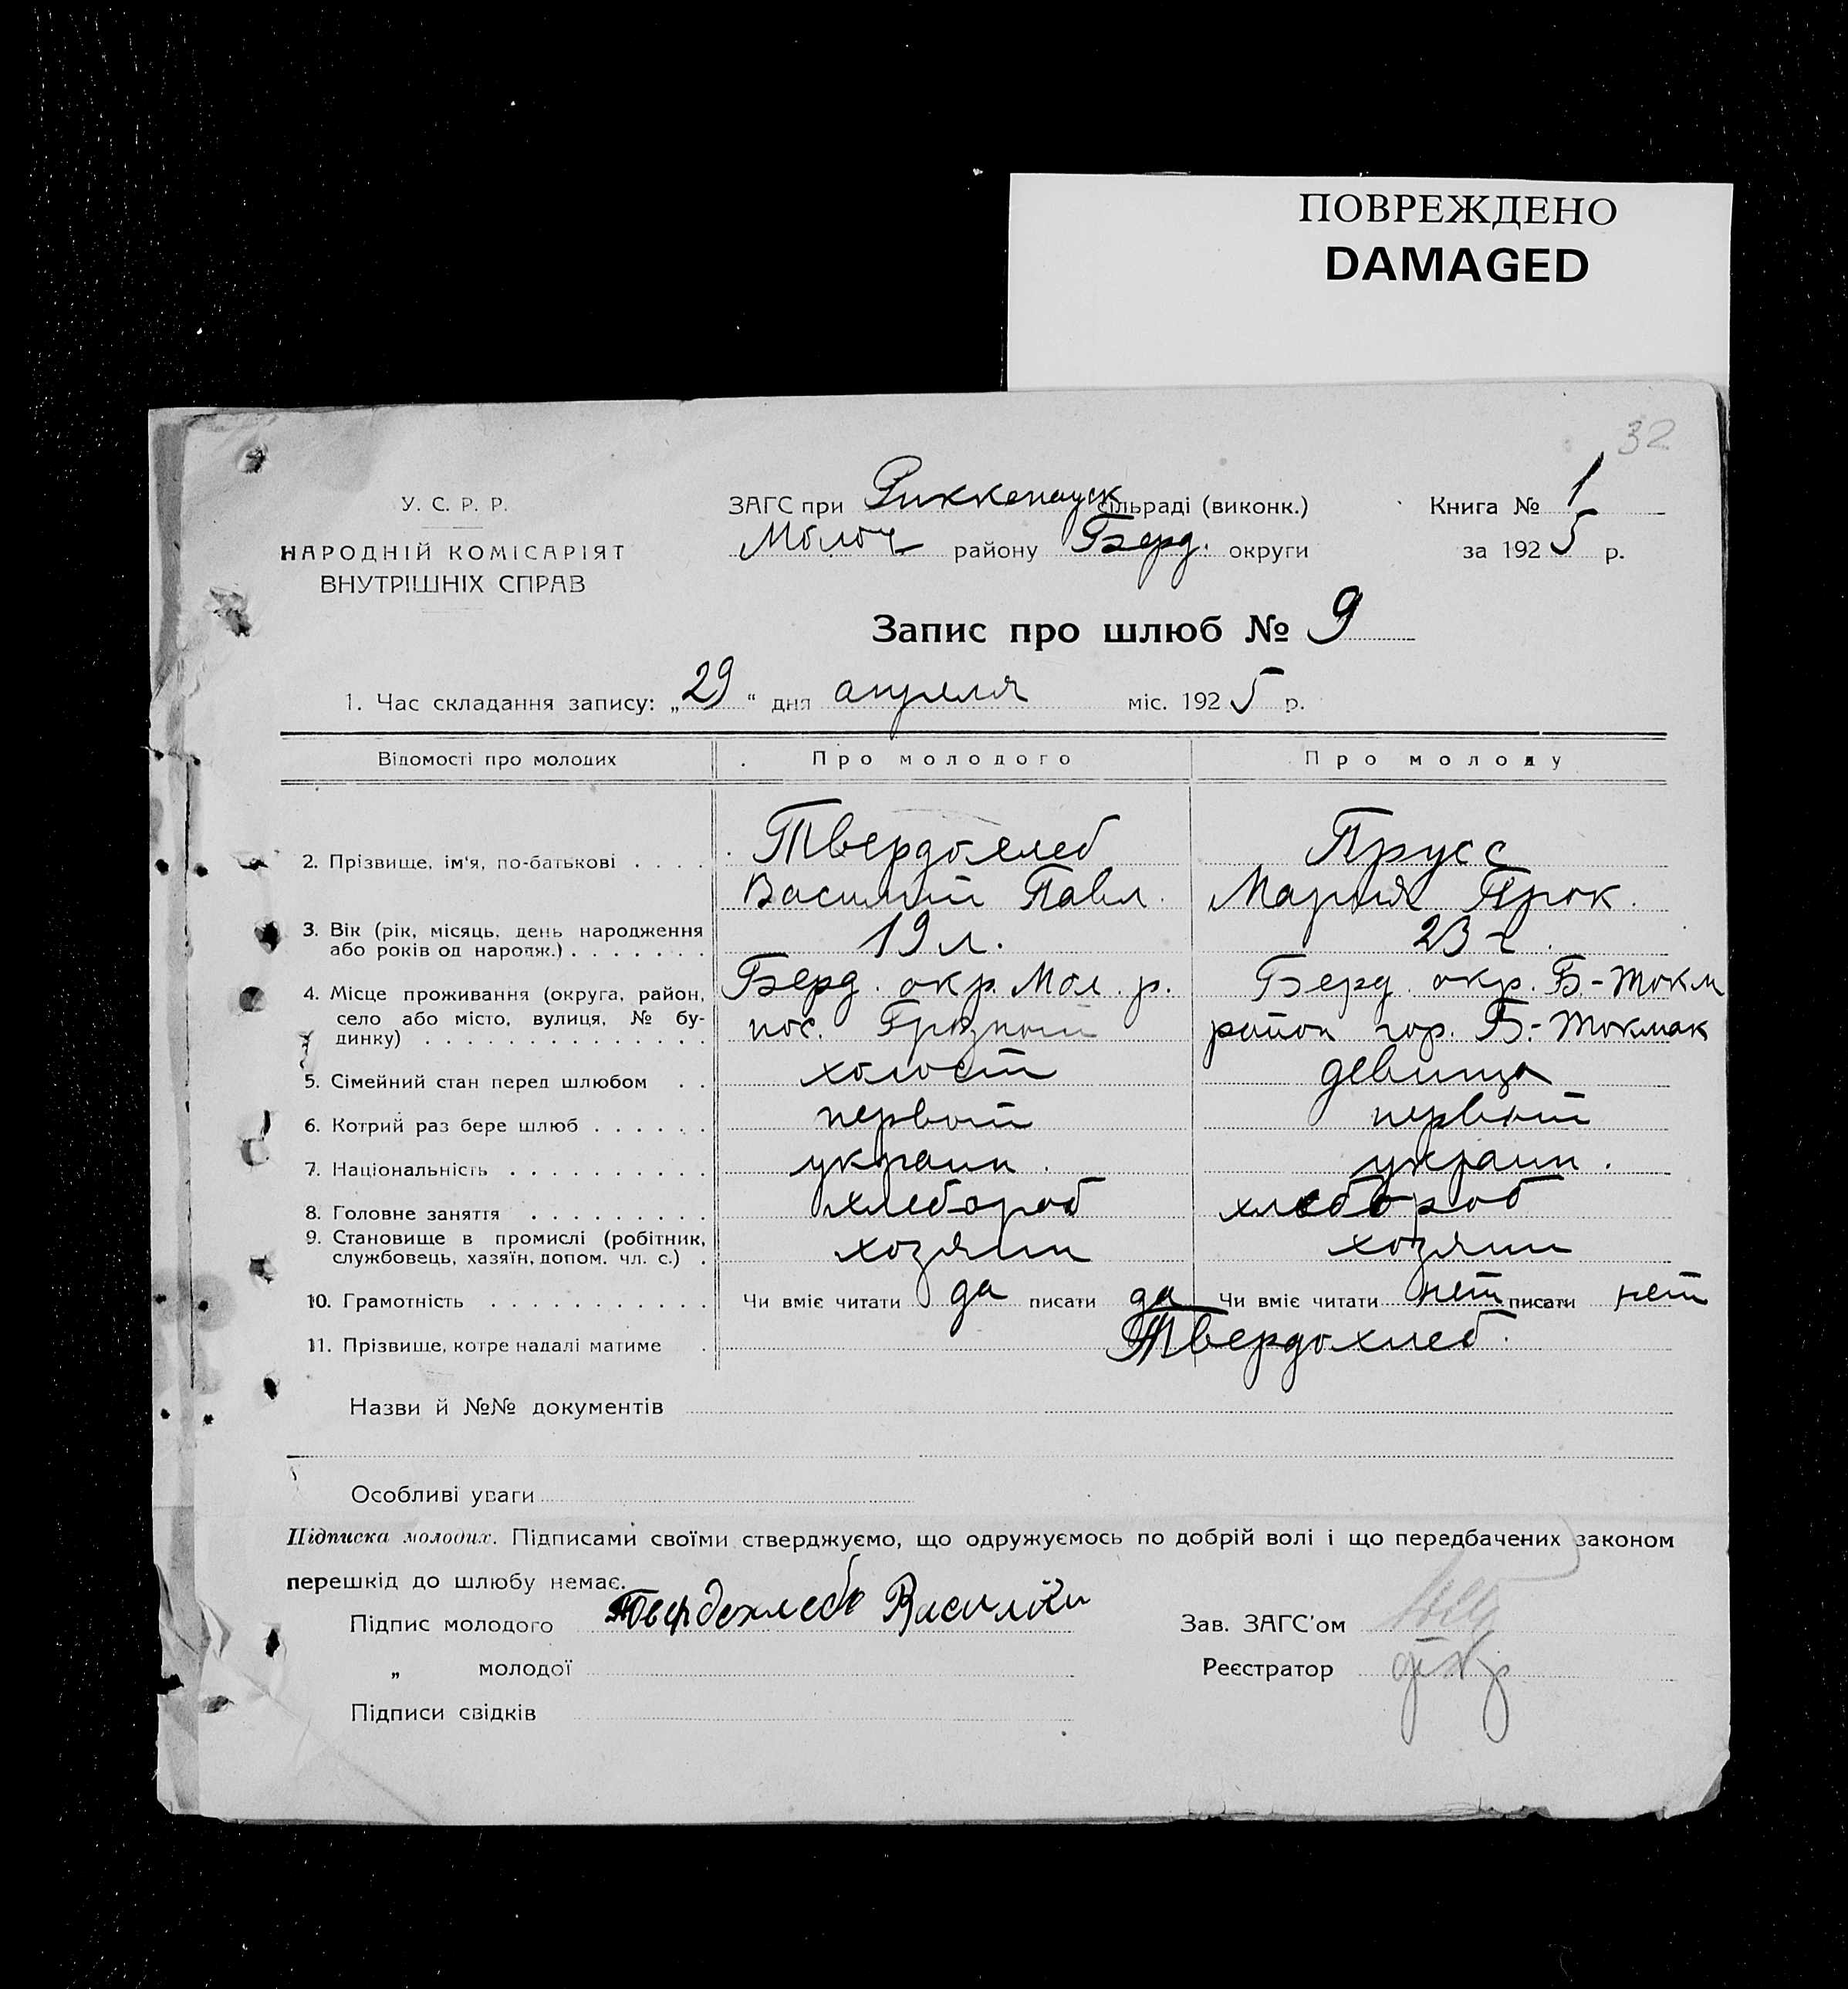 ПОВРЕЖДЕНО
DAMAGED
32
У. С. Р. Р.
НАРОДНІЙ КОМІСАРІЯТ
ВНУТРІШНІХ СПРАВ
ЗАГС при Риккенауск сільраді (виконк.)
Молоч району Берд. округи
Книга № 1
за 1925 р.
Запис про шлюб № 9
1. Час складання запису: „29“ дня апреля міс. 1925 р.
Відомості про молодих Про молодого Про молоду
2. Прізвище, ім'я, по-батькові . . . . Твердохлеб Прусс
Василий Павл. Мария Прок.
3. Вік (рік, місяць, день народження 19 л. 23 г.
або років од народж.) . . . . . . .
4. Місце проживання (округа, район, Берд. окр. Мол. р. Берд. окр. Б-Токм
село або місто, вулиця, № бу- пос. Грозный район гор. Б.-Токмак
динку) . . . . . . . . . . . . . .
5. Сімейний стан перед шлюбом . . холост девица
6. Котрий раз бере шлюб . . . . . . первый первый
7. Національність . . . . . . . . . . украин. украин.
8. Головне заняття . . . . . . . . . хлебороб хлебороб
9. Становище в промислі (робітник, хозяин хозяин
службовець, хазяїн, допом. чл. с.) .
10. Грамотність . . . . . . . . . . . Чи вміє читати да писати да Чи вміє читати нет писати нет
11. Прізвище, котре надалі матиме . Твердохлеб.
Назви й №№ документів
Особливі уваги
Підписка молодих. Підписами своїми стверджуємо, що одружуємось по добрій волі і що передбачених законом
перешкід до шлюбу немає.
Підпис молодого Твердохлеб Василий Зав. ЗАГС'ом
„ молодої Реєстратор
Підписи свідків